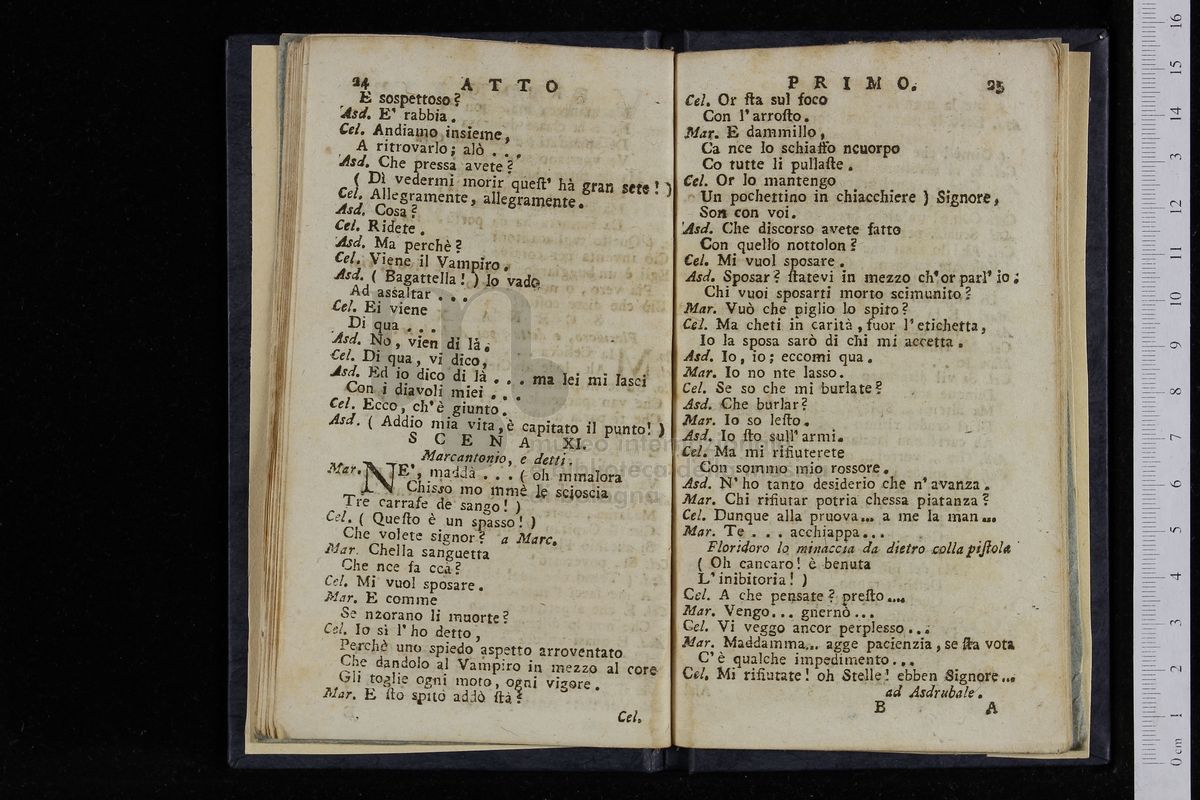 24 ATTO
E sospettoso?
Asd. E' rabbia.
Cel. Andiamo insieme,
A ritrovarlo; alò . . .
Asd. Che pressa avete?
( Di vedermi morir quest' hà gran sete! )
Cel. Allegramente, allegramente.
Asd. Cosa?
Cel. Ridete.
Asd. Ma perchè?
Cel. Viene il Vampiro.
Asd. ( Bagattella! ) Io vado
Ad assaltar . . .
Cel. Ei viene
Di qua . . .
Asd. No, vien di là.
Cel. Di qua, vi dico,
Asd. Ed io dico di là . . . ma lei mi lasci
Con i diavoli miei . . .
Cel. Ecco, ch'è giunto.
Asd. ( Addio mia vita, è capitato il punto! )
SCENA XI.
Marcantonio, e detti.
Mar. NE', maddà . . . ( oh mmalora
Chisso mo mmè le scioscia
Tre carrafe de sango! )
Cel. ( Questo è un spasso! )
Che volete signor? a Marc.
Mar. Chella sanguetta
Che nce fa ccà?
Cel. Mi vuol sposare.
Mar. E comme
Se nzorano li muorte?
Cel. Io sì l'ho detto,
Perchè uno spiedo aspetto arroventato
Che dandolo al Vampiro in mezzo al core
Gli toglie ogni moto, ogni vigore.
Mar. E sto spito addò stà?
Cel.
PRIMO. 25
Cel. Or sta sul foco
Con l'arrosto.
Mar. E dammillo,
Ca nce lo schiaffo ncuorpo
Co tutte li pullaste.
Cel. Or lo mantengo
Un pochettino in chiacchiere ) Signore,
Son con voi.
Asd. Che discorso avete fatto
Con quello nottolon?
Cel. Mi vuol sposare.
Asd. Sposar? statevi in mezzo ch'or parl' io:
Chi vuoi sposarti morto scimunito?
Mar. Vuò che piglio lo spito?
Cel. Ma cheti in carità, fuor l'etichetta,
Io la sposa sarò di chi mi accetta.
Asd. Io, io; eccomi qua.
Mar. Io no nte lasso.
Cel. Se so che mi burlate?
Asd. Che burlar?
Mar. Io so lesto.
Asd. Io sto sull'armi.
Cel. Ma mi rifiuterete
Con sommo mio rossore.
Asd. N'ho tanto desiderio che n'avanza.
Mar. Chi rifiutar potria chessa piatanza?
Cel. Dunque alla pruova... a me la man...
Mar. Te . . . acchiappa...
Floridoro lo minaccia da dietro colla pistola
( Oh cancaro! è benuta
L'inibitoria! )
Cel. A che pensate? presto....
Mar. Vengo... gnernò...
Cel. Vi veggo ancor perplesso...
Mar. Maddamma... agge pacienzia, se sta vota
C'è qualche impedimento...
Cel. Mi rifiutate! oh Stelle! ebben Signore...
ad Asdrubale.
B A
museo inter
biblioteca della mus
gna
0 cm 1 2 3 4 5 6 7 8 9 10 11 12 13 14 15 16